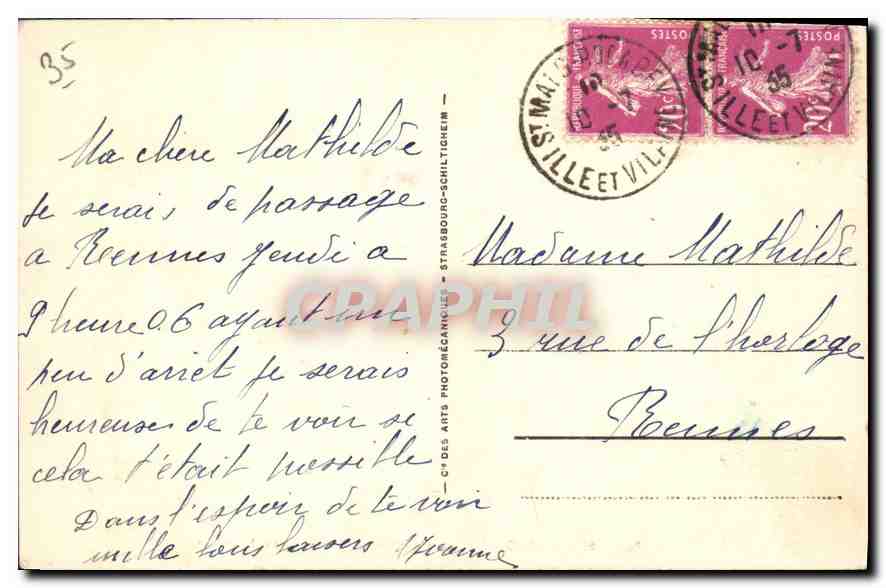 35
Ma chère Mathilde
Je serais de passage
a Rennes Jeudi a
9 heure 06 ayant un
peu d'arret Je serais
heureuse de te voir se
cela t'était possible
Dans l'espoir de te voir
mille bons baisers Yvonne
— Cie DES ARTS PHOTOMÉCANIQUES — STRASBOURG-SCHILTIGHEIM —
REPUBLIQUE FRANÇAISE
POSTES
20c
FRANÇAISE
POSTES
20c
ST MALO
10 -7
35
ILLE ET VILAINE
ST MA
10 -7
35
ILLE ET VILAINE
Madame Mathilde
3 rue de l'horloge
Rennes
CPAPHIL